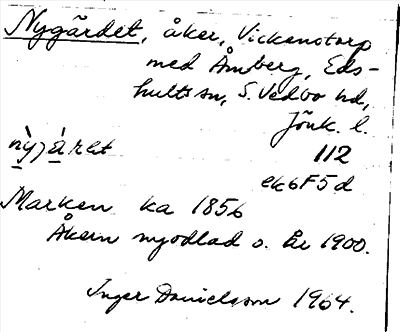 Nygärdet, åker, Vickenstorp
med Åmberg, Eds-
hults sn, S. Vedbo hd,
Jönk. l.
112
ek6F5d
Marken ka 1856
Åkern nyodlad o. år 1900.
Inger Danielsson 1964.